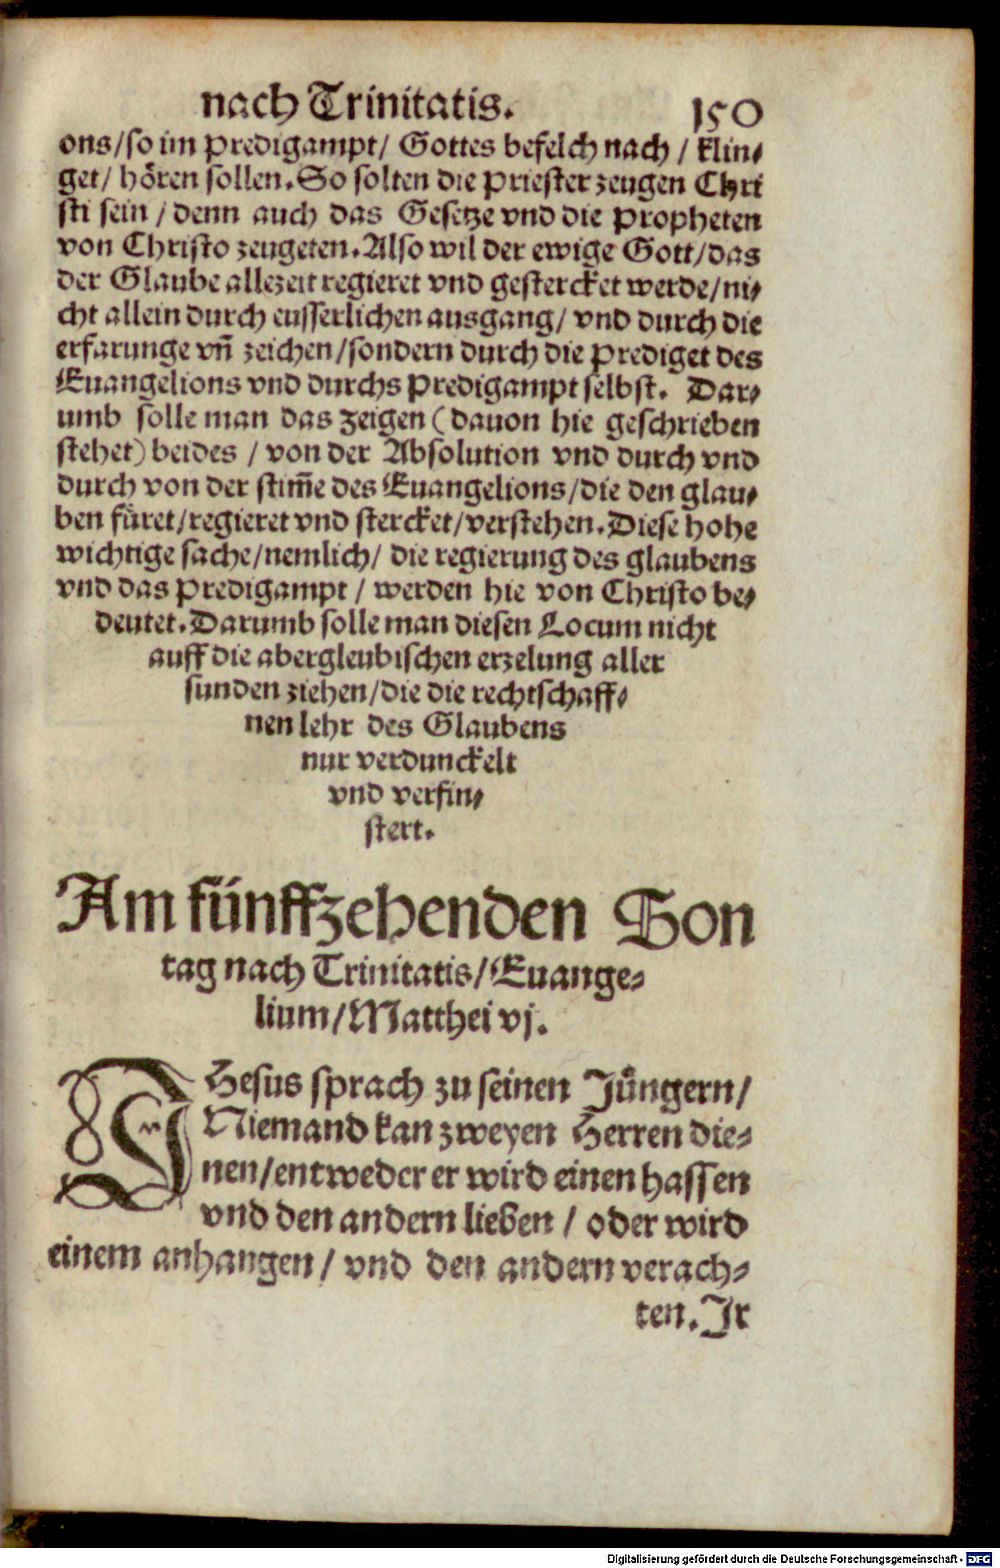 nach Trinitatis. 150
ons/so im Predigampt/ Gottes befelch nach / klin⸗
get/ hören sollen.So solten die Priester zeugen Chri
sti sein / denn auch das Gesetze vnd die Propheten
von Christo zeugeten.Also wil der ewige Gott/das
der Glaube allezeit regieret vnd gestercket werde/ni⸗
cht allein durch eusserlichen ausgang/ vnd durch die
erfarunge vñ zeichen/sondern durch die Prediget des
Euangelions vnd durchs Predigampt selbst. Dar⸗
umb solle man das zeigen (dauon hie geschrieben
stehet) beides / von der Absolution vnd durch vnd
durch von der stim̃e des Euangelions/die den glau⸗
ben füret/regieret vnd stercket/verstehen.Diese hohe
wichtige sache/nemlich/ die regierung des glaubens
vnd das Predigampt / werden hie von Christo be⸗
deutet.Darumb solle man diesen Locum nicht
auff die abergleubischen erzelung aller
sunden ziehen/die die rechtschaff⸗
nen lehr des Glaubens
nur verdunckelt
vnd verfin⸗
stert.
Am fünffzehenden Son
tag nach Trinitatis/Euange⸗
lium/Matthei vj.
JHesus sprach zu seinen Jüngern/
Niemand kan zweyen Herren die⸗
nen/entweder er wird einen hassen
vnd den andern lieben / oder wird
einem anhangen / vnd den andern verach⸗
ten.Jr
Digitalisierung gefördert durch die Deutsche Forschungsgemeinschaft - DFG